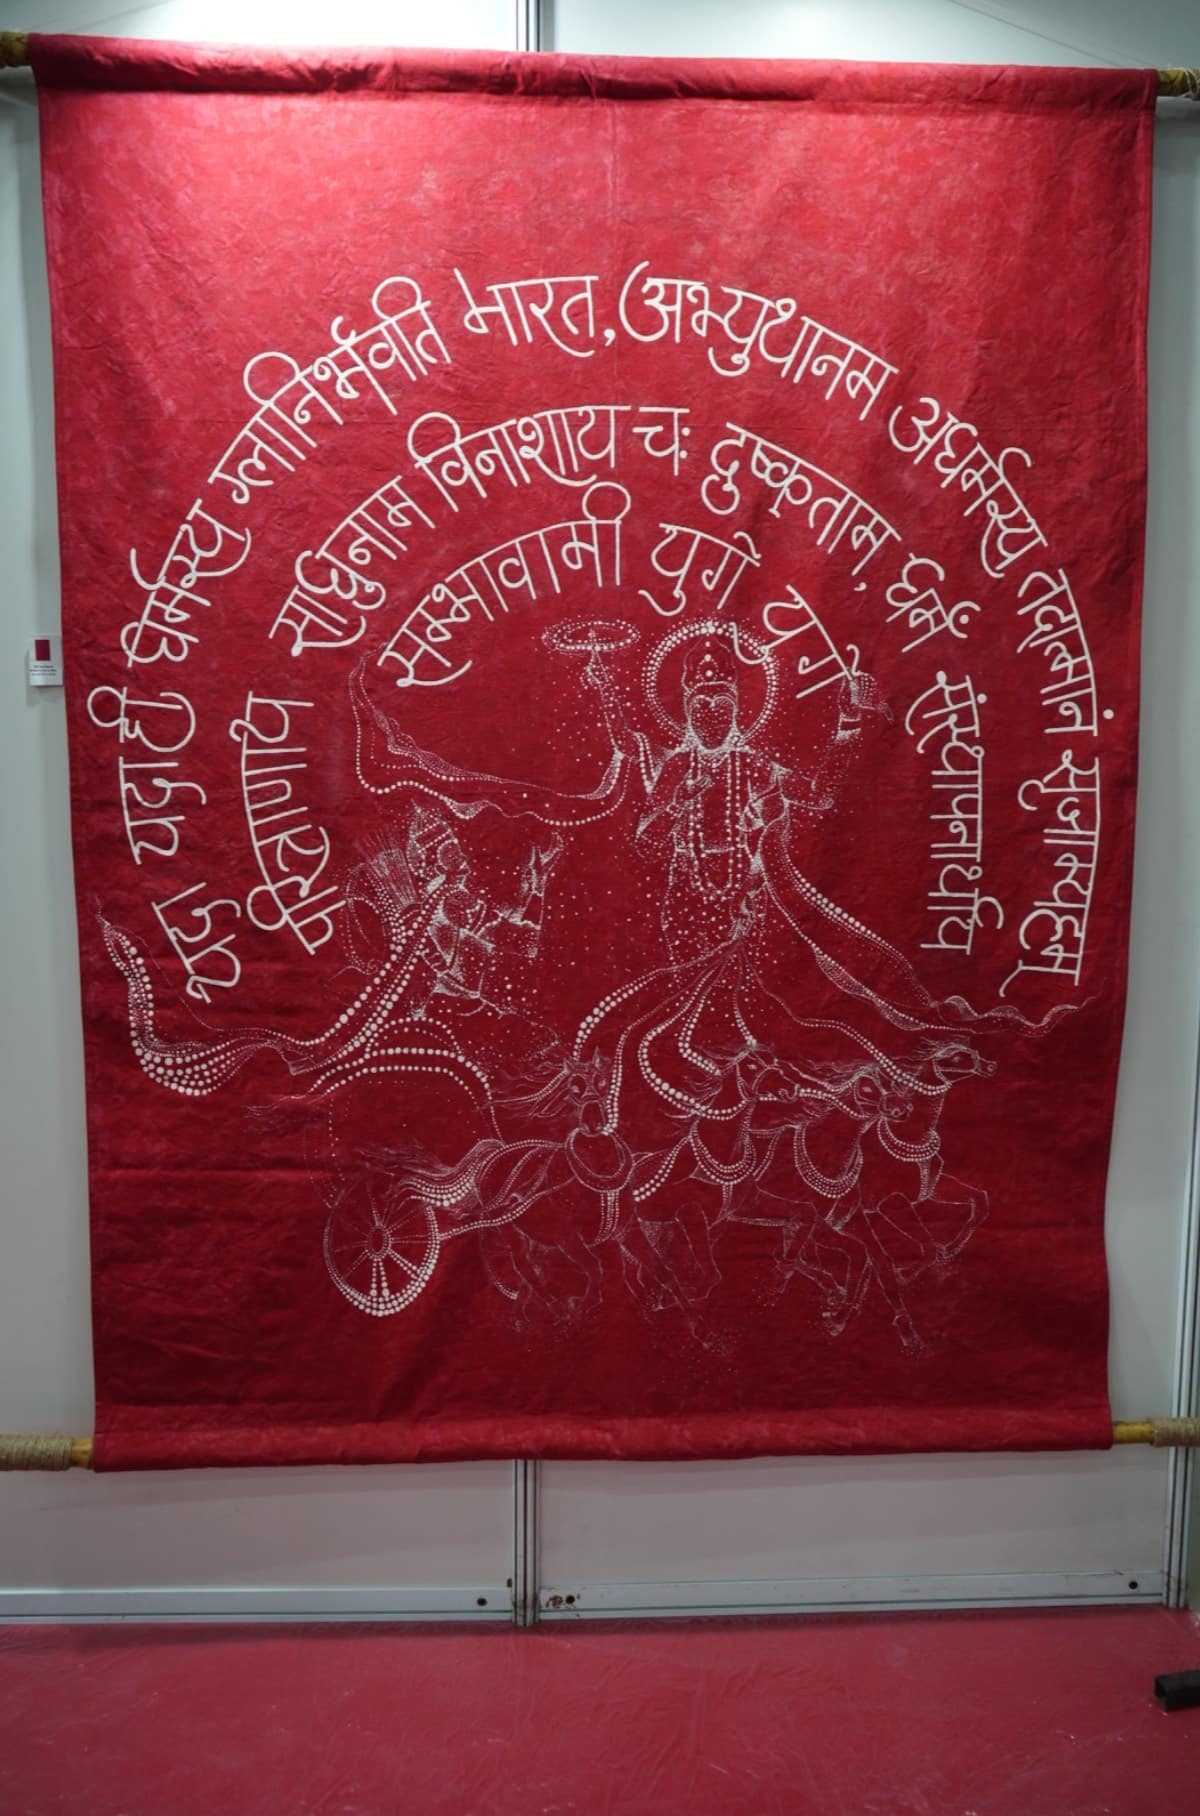 यदा यदाही धर्मस्य ग्लानिर्भवति भारत, अभ्युथानम अधर्मस्य तदात्मानं सृजाम्यहम
परित्राणाय साधुनाम विनाशाय चः दुष्कृताम, धर्म संस्थापनार्थाय
सम्भावामी युगे युगे